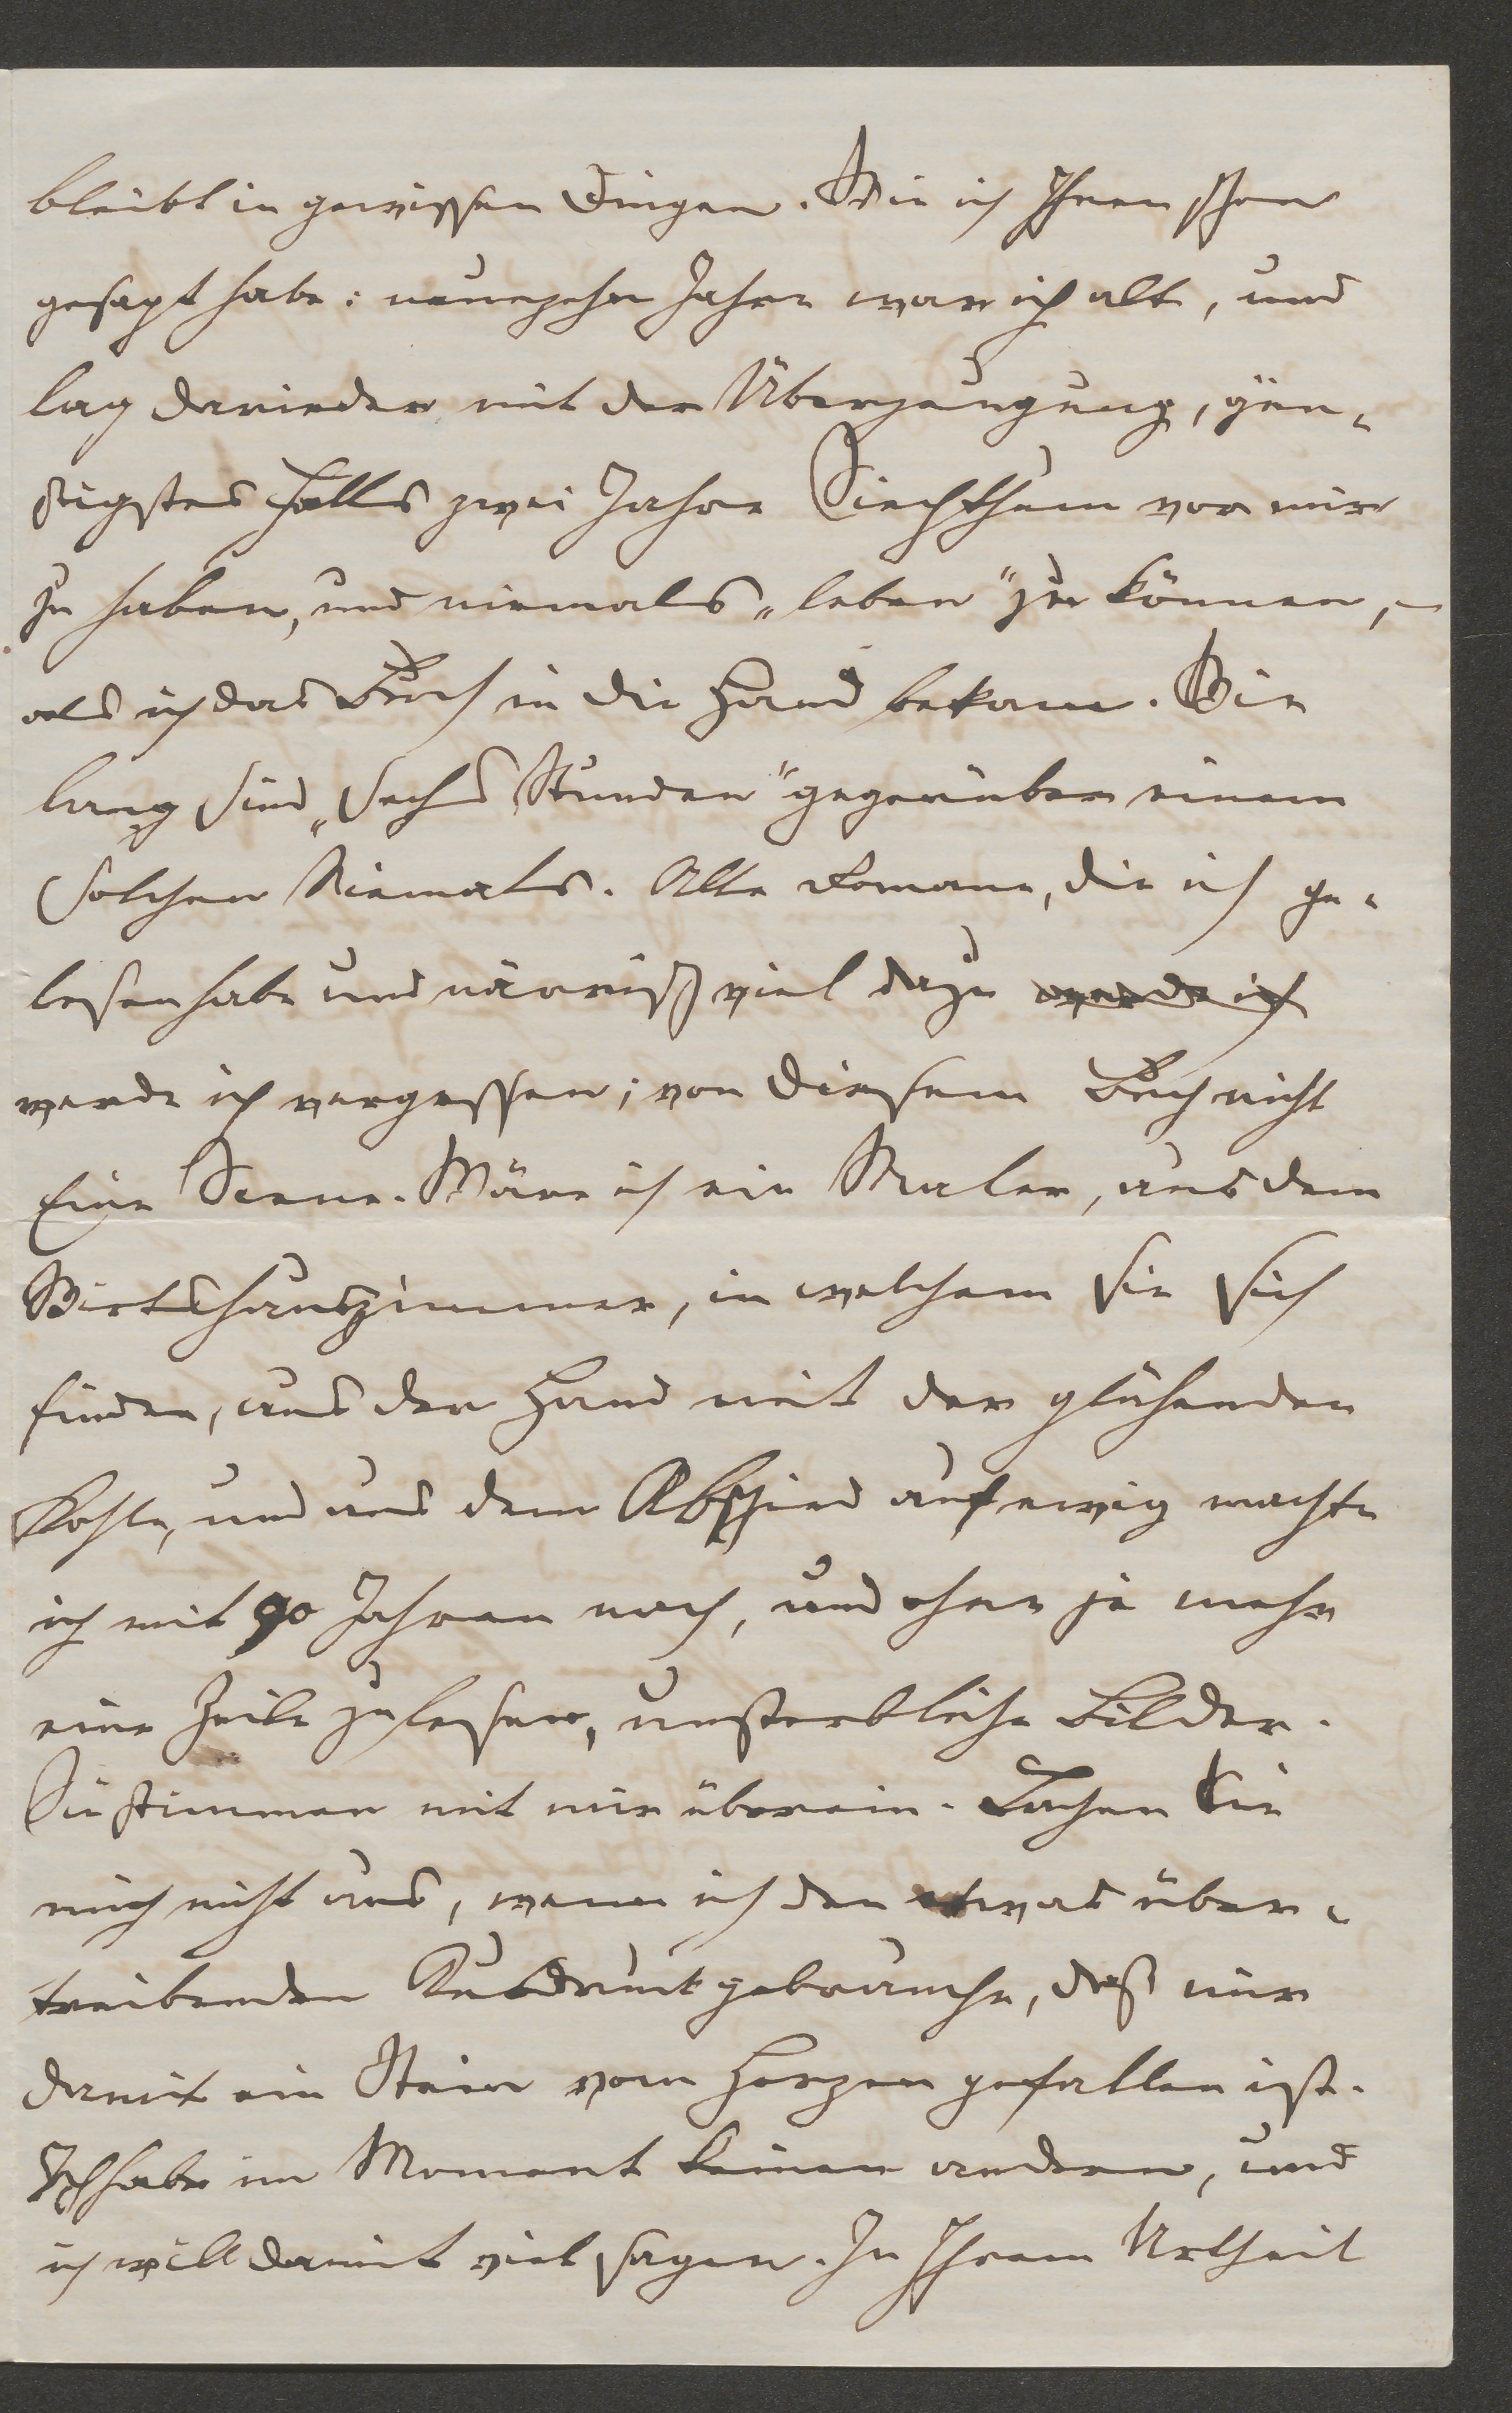 bleibt in gewissen Dingen. Wie ich Ihnen schon
gesagt habe: neunzehn Jahre war ich alt, und
lag darnieder mit der Überzeugung, gün-
stigsten Falls zwei Jahre Siechthum vor mir
zu haben, und niemals „leben" zu können, –
als ich das Buch in die Hand bekam. Wie
lang sind „sechs Stunden" gegenüber einem
solchen Niemals. Alle Romane, die ich ge-
lesen habe und närrisch viel dazu werde ich
werde ich vergessen; von diesem Buch nicht
Eine Scene. Wäre ich ein Maler, aus dem
Wirtshauszimmer, in welchem sie sich
finden, aus der Hand mit der glühenden
Kohle, und aus dem Abschied auf ewig machte
ich mit 90 Jahren noch, und ohne je mehr
eine Zeile zu lesen, unsterbliche Bilder.
Sie stimmen mit mir überein. Lachen Sie
mich nicht aus, wenn ich den etwas über-
treibenden Ausdruck gebrauche, daß mir
damit ein Stein vom Herzen gefallen ist.
Ich habe im Moment keinen andern, und
ich will damit viel sagen. In Ihrem Urtheil